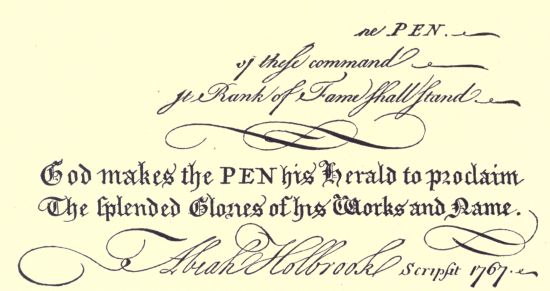 ne PEN.
of theſe command
ſt Rank of Fame ſhall ſtand
God makes the PEN his Herald to proclaim
The ſplended Glories of his Works and Name.
Abiah Holbrook Scripſit 1767.